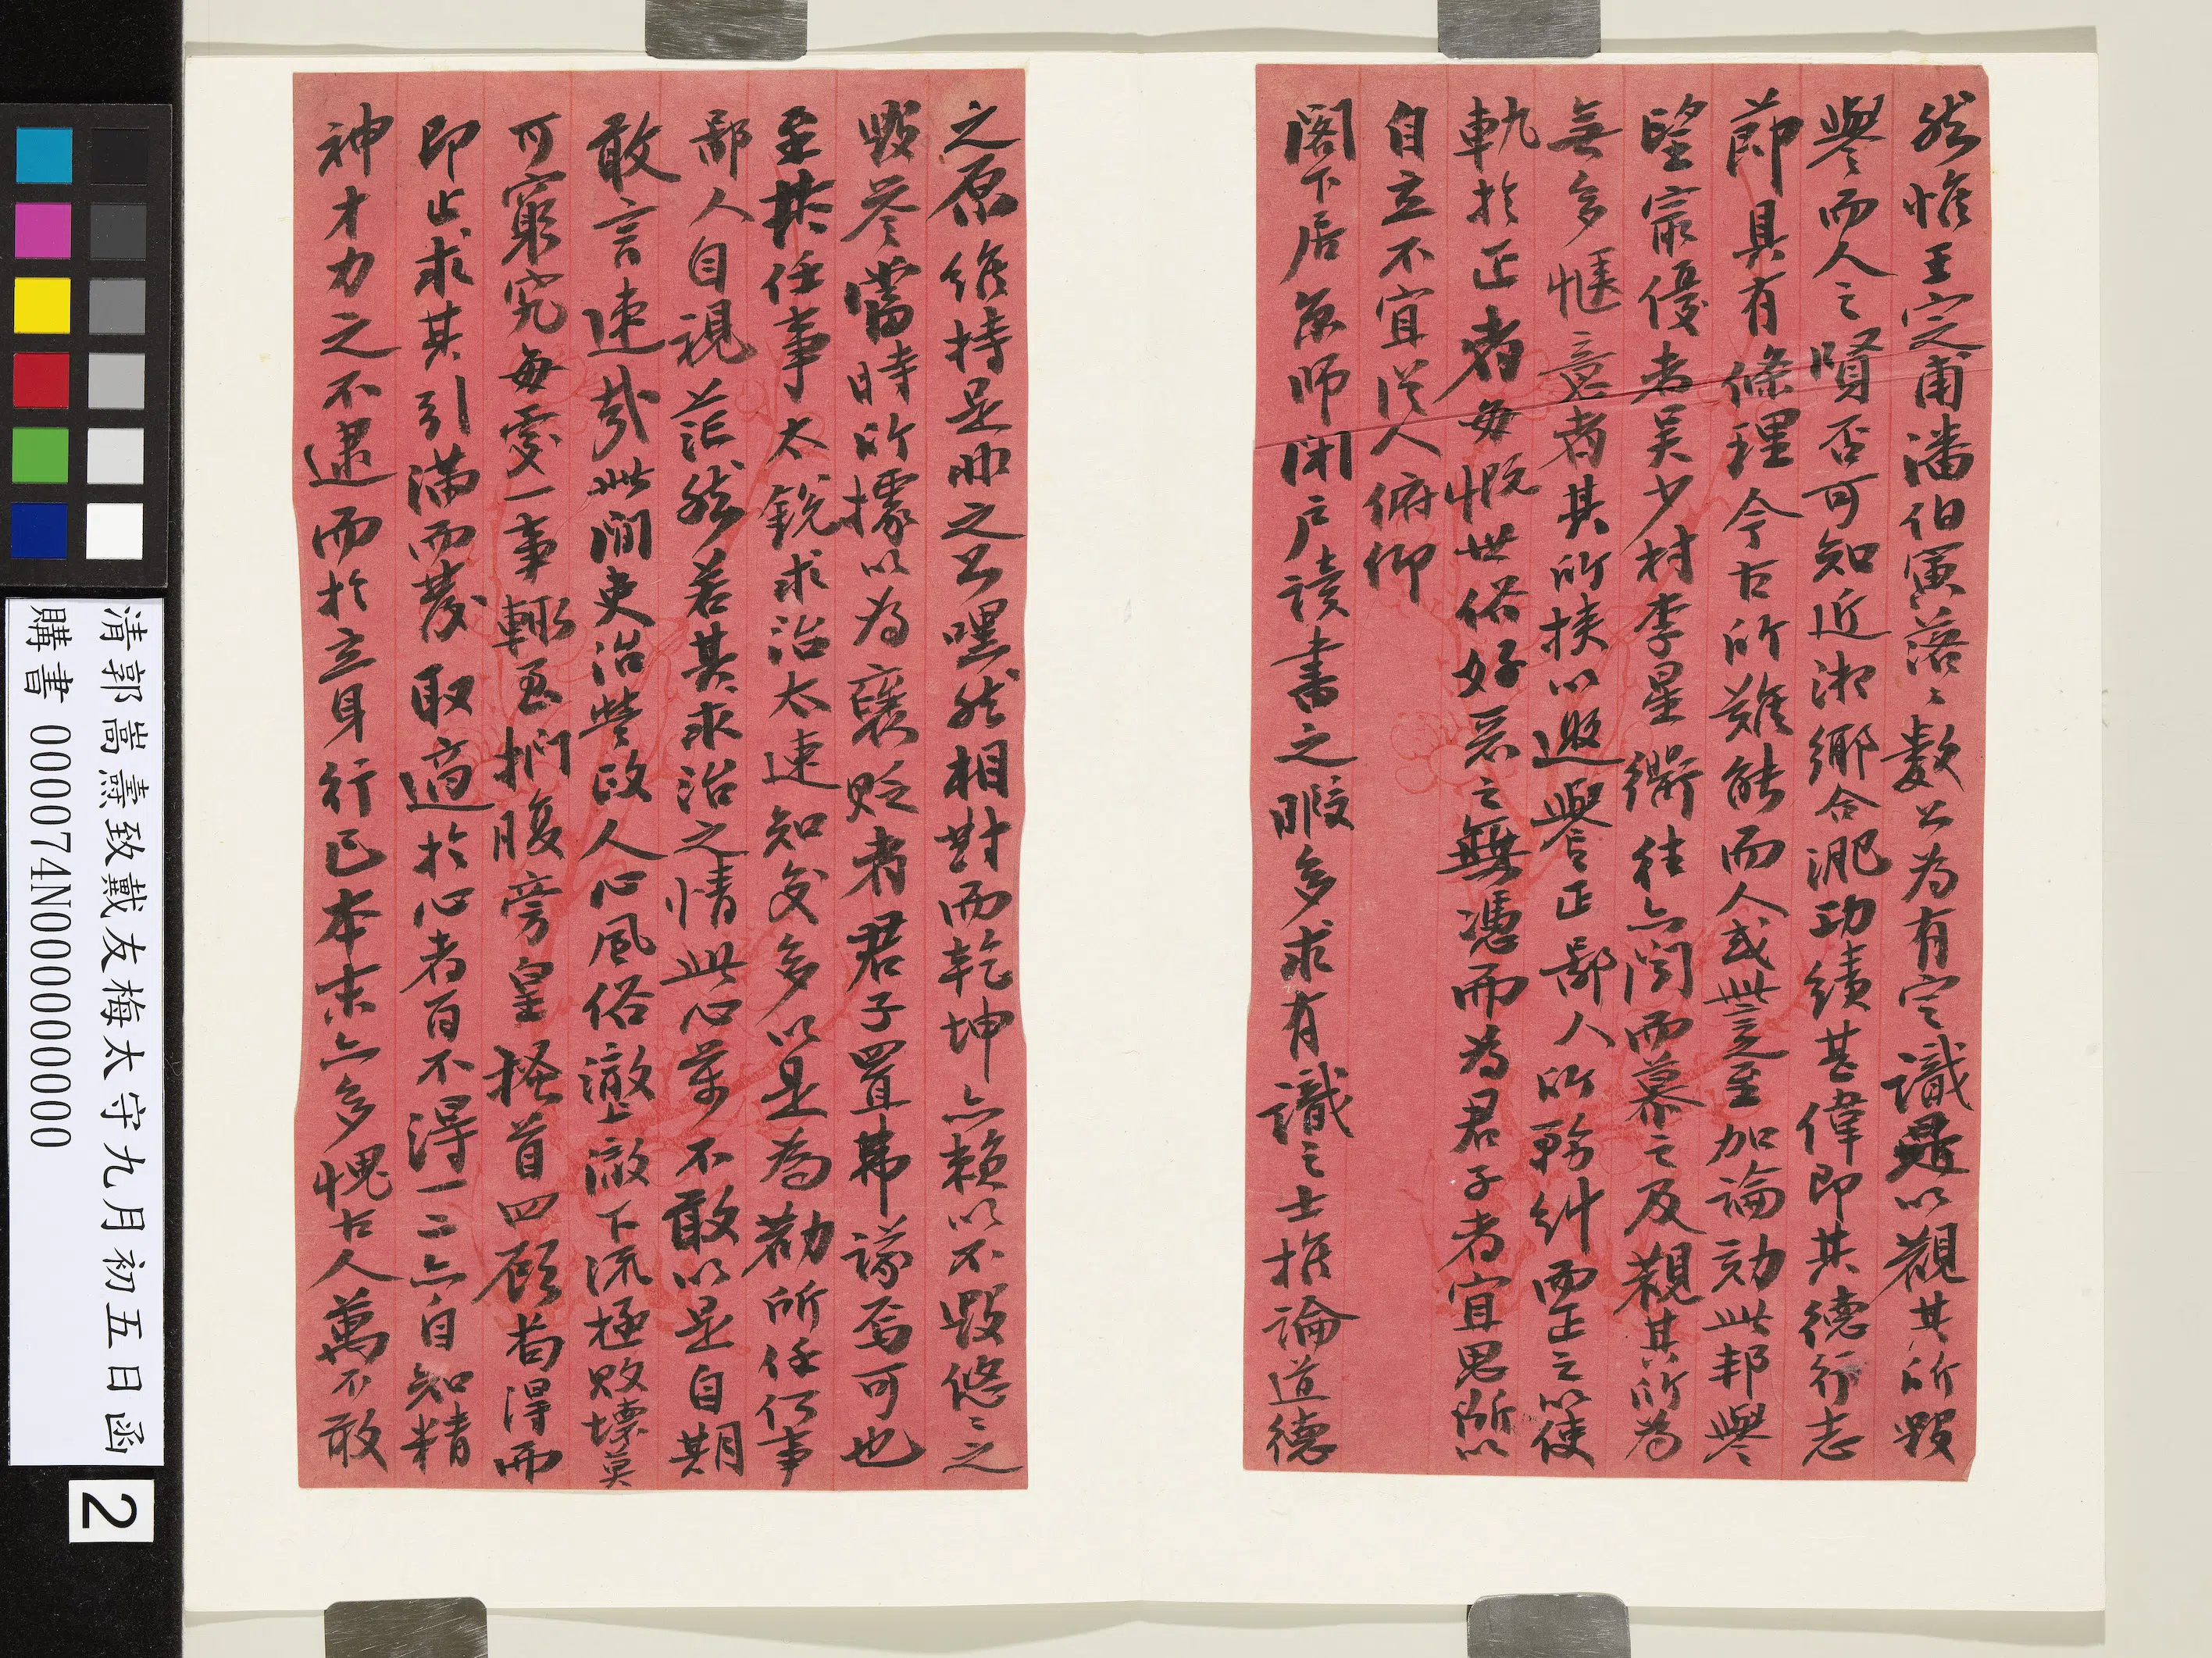 然惟王定甫潘伯寅落〻數公為有定識是以觀其所毀
譽而人之賢否可知近湘鄉合淝功績甚偉即其德行志
節具有條理今古所難能而人或訾之至加論劾此邦譽
望最優者吳少村李星衢往亦聞而慕之及觀其所為
無多愜意者其所挾以邀譽正鄙人所務糾而正之以使
軌於正者每慨世俗好惡之無憑而為君子者宜思所以
自立不宜從人俯仰
閣下居京師閉戶讀書之暇多求有識之士推論道德
之原維持是非之公嘿然相對而乾坤亦賴以不毀悠〻之
毀譽當時所據以為襃貶者君子置弗議焉可也
至於任事太銳求治太速知交多以是為勸所任何事
鄙人自視茫然若其求治之情此心萬不敢以是自期
敢言速哉此間吏治營政人心風俗澈上澈下流極敗壞莫
可窮究每處一事輒至捫腹旁皇搔首四顧苟得而
即止求其引滿而發取適於心者百不得一二亦自知精
神才力之不逮而於立身行己本末亦多愧古人萬不敢
清郭嵩燾致戴友梅太守九月初五日函
購書 0000074N000000000
2